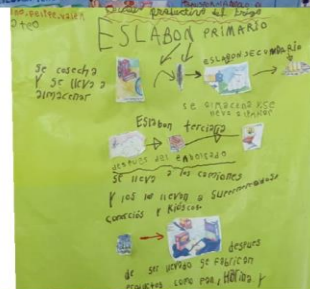 productivo del trigo
ESLABON PRIMARIO
ESLABON SECUNDARIO
se cosecha
y se lleva a
almacenar
se almacena y se
lleva a
Eslabon terciario
despues del embolsado
se lleva a los camiones
y los llevan a supermercados
comercios y kioscos
despues
de ser llevado se fabrican
productos como pan, Harina y